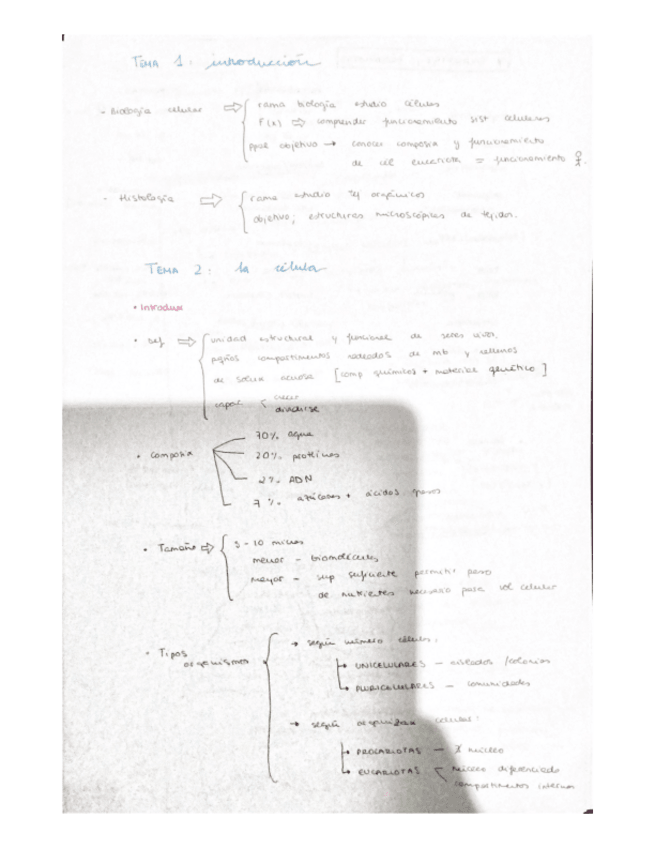 TEMA 1: introducción
- Biología celular ⇒ rama biología estudio células
F(x) ⇒ comprender funcionamiento sist. celulares
ppal objetivo → conocer composix y funcionamiento
de cél eucariota = funcionamiento
- Histología ⇒ rama estudio tej orgánicos
objetivo; estructuras microscópicas de tejidos.
TEMA 2: la célula
• Introdux
• Def ⇒ unidad estructural y funcional de seres vivos,
pqños compartimentos rodeados de mb y rellenos
de solux acuosa [comp químicos + material genético]
capac < crecer
dividirse
• Composix
70% agua
20% proteínas
2% ADN
7% azúcares + ácidos grasos
• Tamaño ⇒ 5-10 micras
menor - biomoléculas
mayor - sup suficiente permitir paso
de nutrientes necesario para vol celular
• Tipos
organismos
→ según número células:
UNICELULARES - aislados /colonias
PLURICELULARES - comunidades
→ según organizax celular:
PROCARIOTAS - X núcleo
EUCARIOTAS < núcleo diferenciado
compartimentos internos